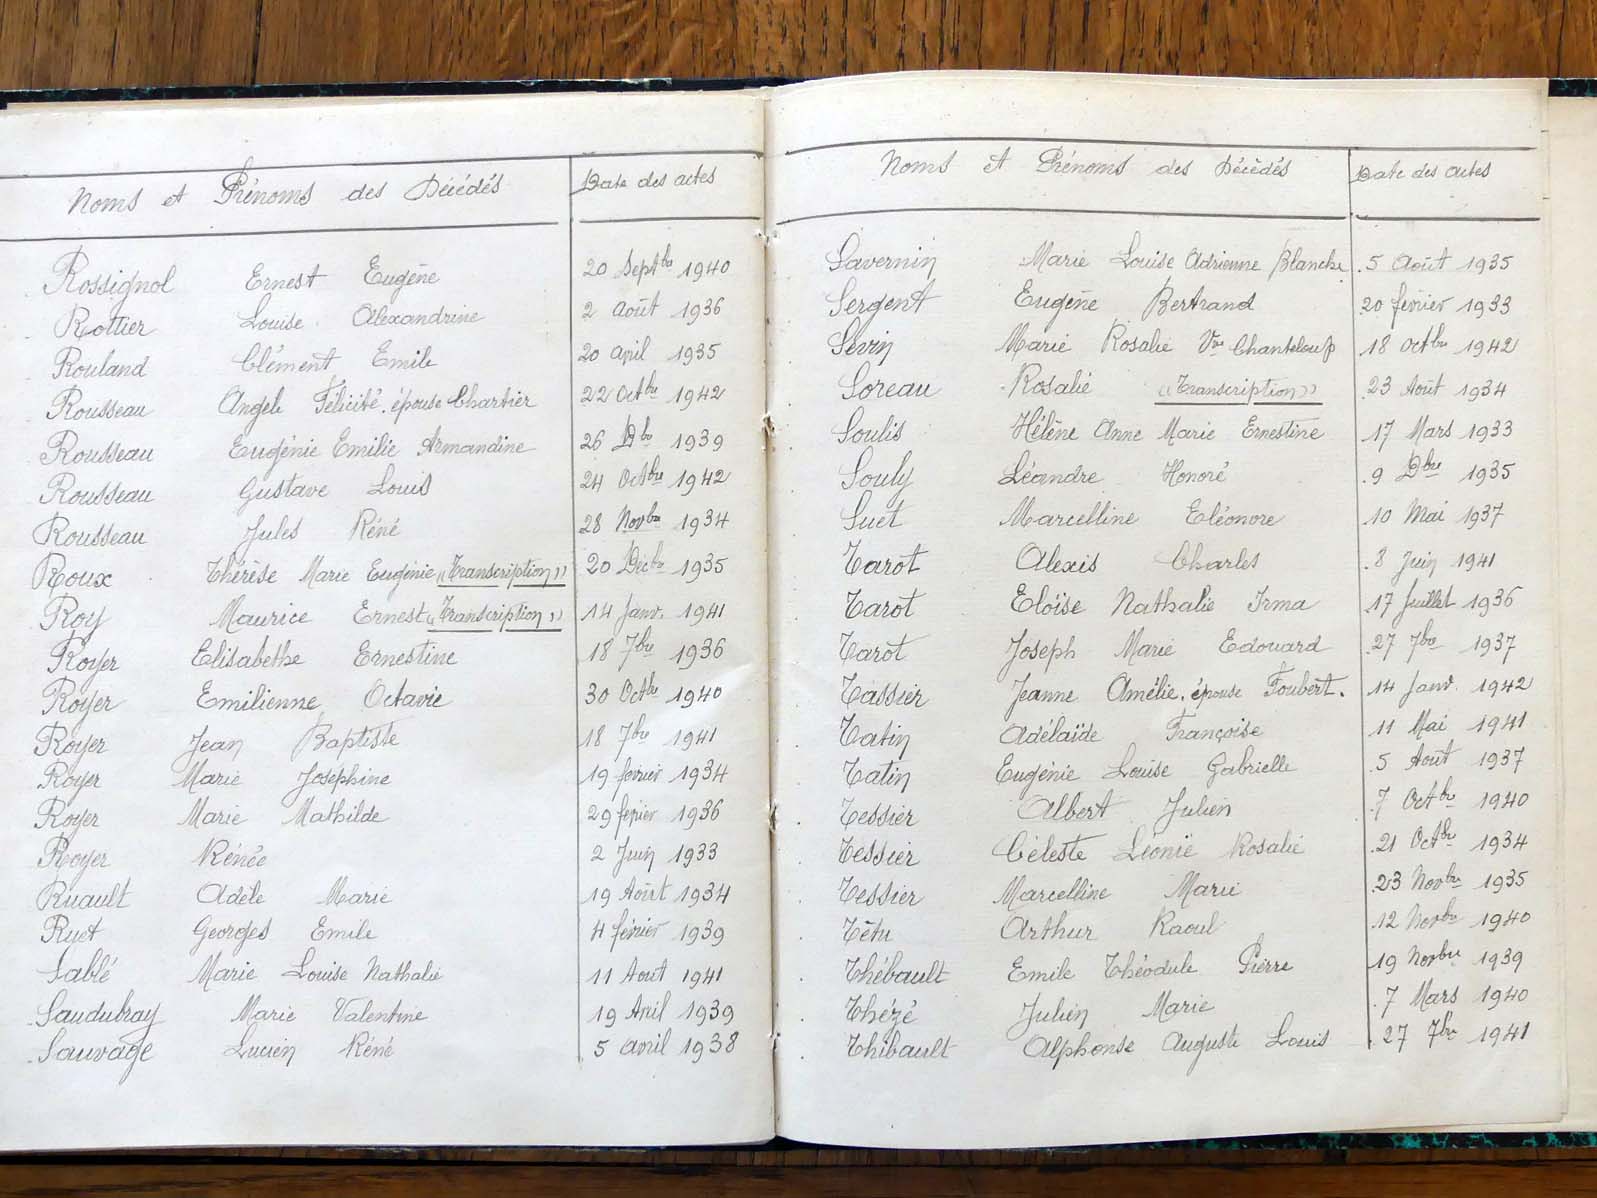 Noms et Prénoms des Décédés Date des actes
Rossignol Ernest Eugène 20 Septbre 1940
Rottier Louise Alexandrine 2 Août 1936
Rouland Clément Emile 20 April 1935
Rousseau Angèle Félicité, épouse Chartier 22 Octbre 1942
Rousseau Eugénie Emilie Armandine 26 Dbre 1939
Rousseau Gustave Louis 24 Octbre 1942
Rousseau Jules Réné 28 Novbre 1934
Roux Thérèse Marie Eugénie "Transcription" 20 Décbre 1935
Roy Maurice Ernest "Transcription" 14 Janv. 1941
Royer Elisabethe Ernestine 18 7bre 1936
Royer Emilienne Octavie 30 Octbre 1940
Royer Jean Baptiste 18 7bre 1941
Royer Marie Joséphine 19 février 1934
Royer Marie Mathilde 29 février 1936
Royer Rénée 2 Juin 1933
Ruault Adèle Marie 19 Août 1934
Ruet Georges Emile 4 février 1939
Sablé Marie Louise Nathalie 11 Aout 1941
Saudubray Marie Valentine 19 Avril 1939
Sauvage Lucien Réné 5 avril 1938
Noms et Prénoms des Décédés Date des actes
Savernin Marie Louise Adrienne Blanche 5 Août 1935
Sergent Eugène Bertrand 20 février 1933
Sévin Marie Rosalie Vve Chanteloup 18 Octbre 1942
Soreau Rosalie "Transcription" 23 Août 1934
Soulis Hélène Anne Marie Ernestine 17 Mars 1933
Souly Léandre Honoré 9 Dbre 1935
Suet Marcelline Eléonore 10 Mai 1937
Tarot Alexis Charles 8 Juin 1941
Tarot Eloïse Nathalie Irma 17 Juillet 1936
Tarot Joseph Marie Edouard 27 7bre 1937
Tassier Jeanne Amélie, épouse Foubert. 14 Janv. 1942
Tatin Adélaïde Françoise 11 Mai 1941
Tatin Eugénie Louise Gabrielle 5 Aout 1937
Tessier Albert Julien 7 Octbre 1940
Tessier Céleste Léonie Rosalie 21 Octbre 1934
Tessier Marcelline Marie 23 Novbre 1935
Têtu Arthur Raoul 12 Novbre 1940
Thébault Emile Théodule Pierre 19 Novbre 1939
Thézé Julien Marie 7 Mars 1940
Thibault Alphonse Auguste Louis 27 7bre 1941